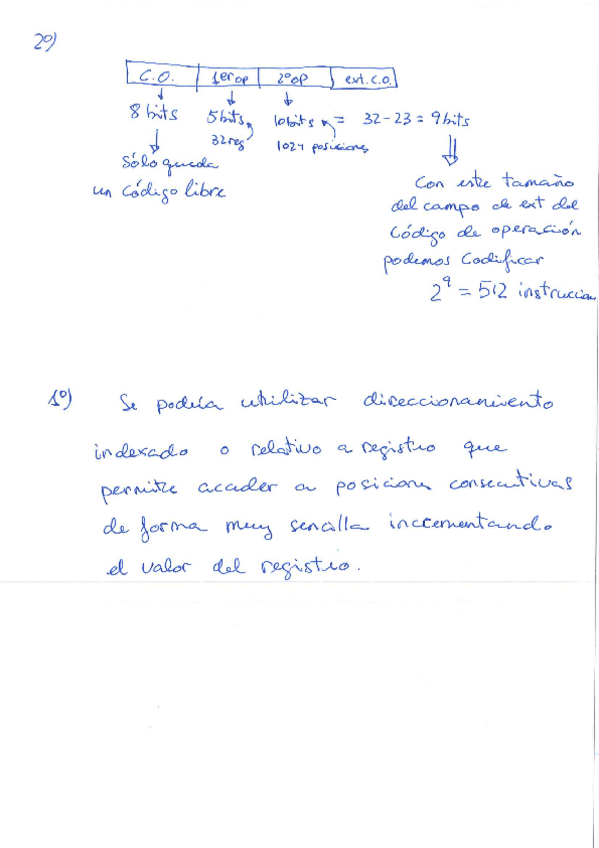 2º)
C.O. 1er op 2º op ext. C.O.
8 bits 5 bits 10 bits = 32-23 = 9 bits
32 reg 1024 posiciones
Sólo queda
un código libre
Con este tamaño
del campo de ext del
Código de operación
podemos Codificar
2⁹ = 512 instruccion
1º) Se podría utilizar direccionamiento
indexado o relativo a registro que
permite acceder a posicion consecutivas
de forma muy sencilla incrementando
el valor del registro.